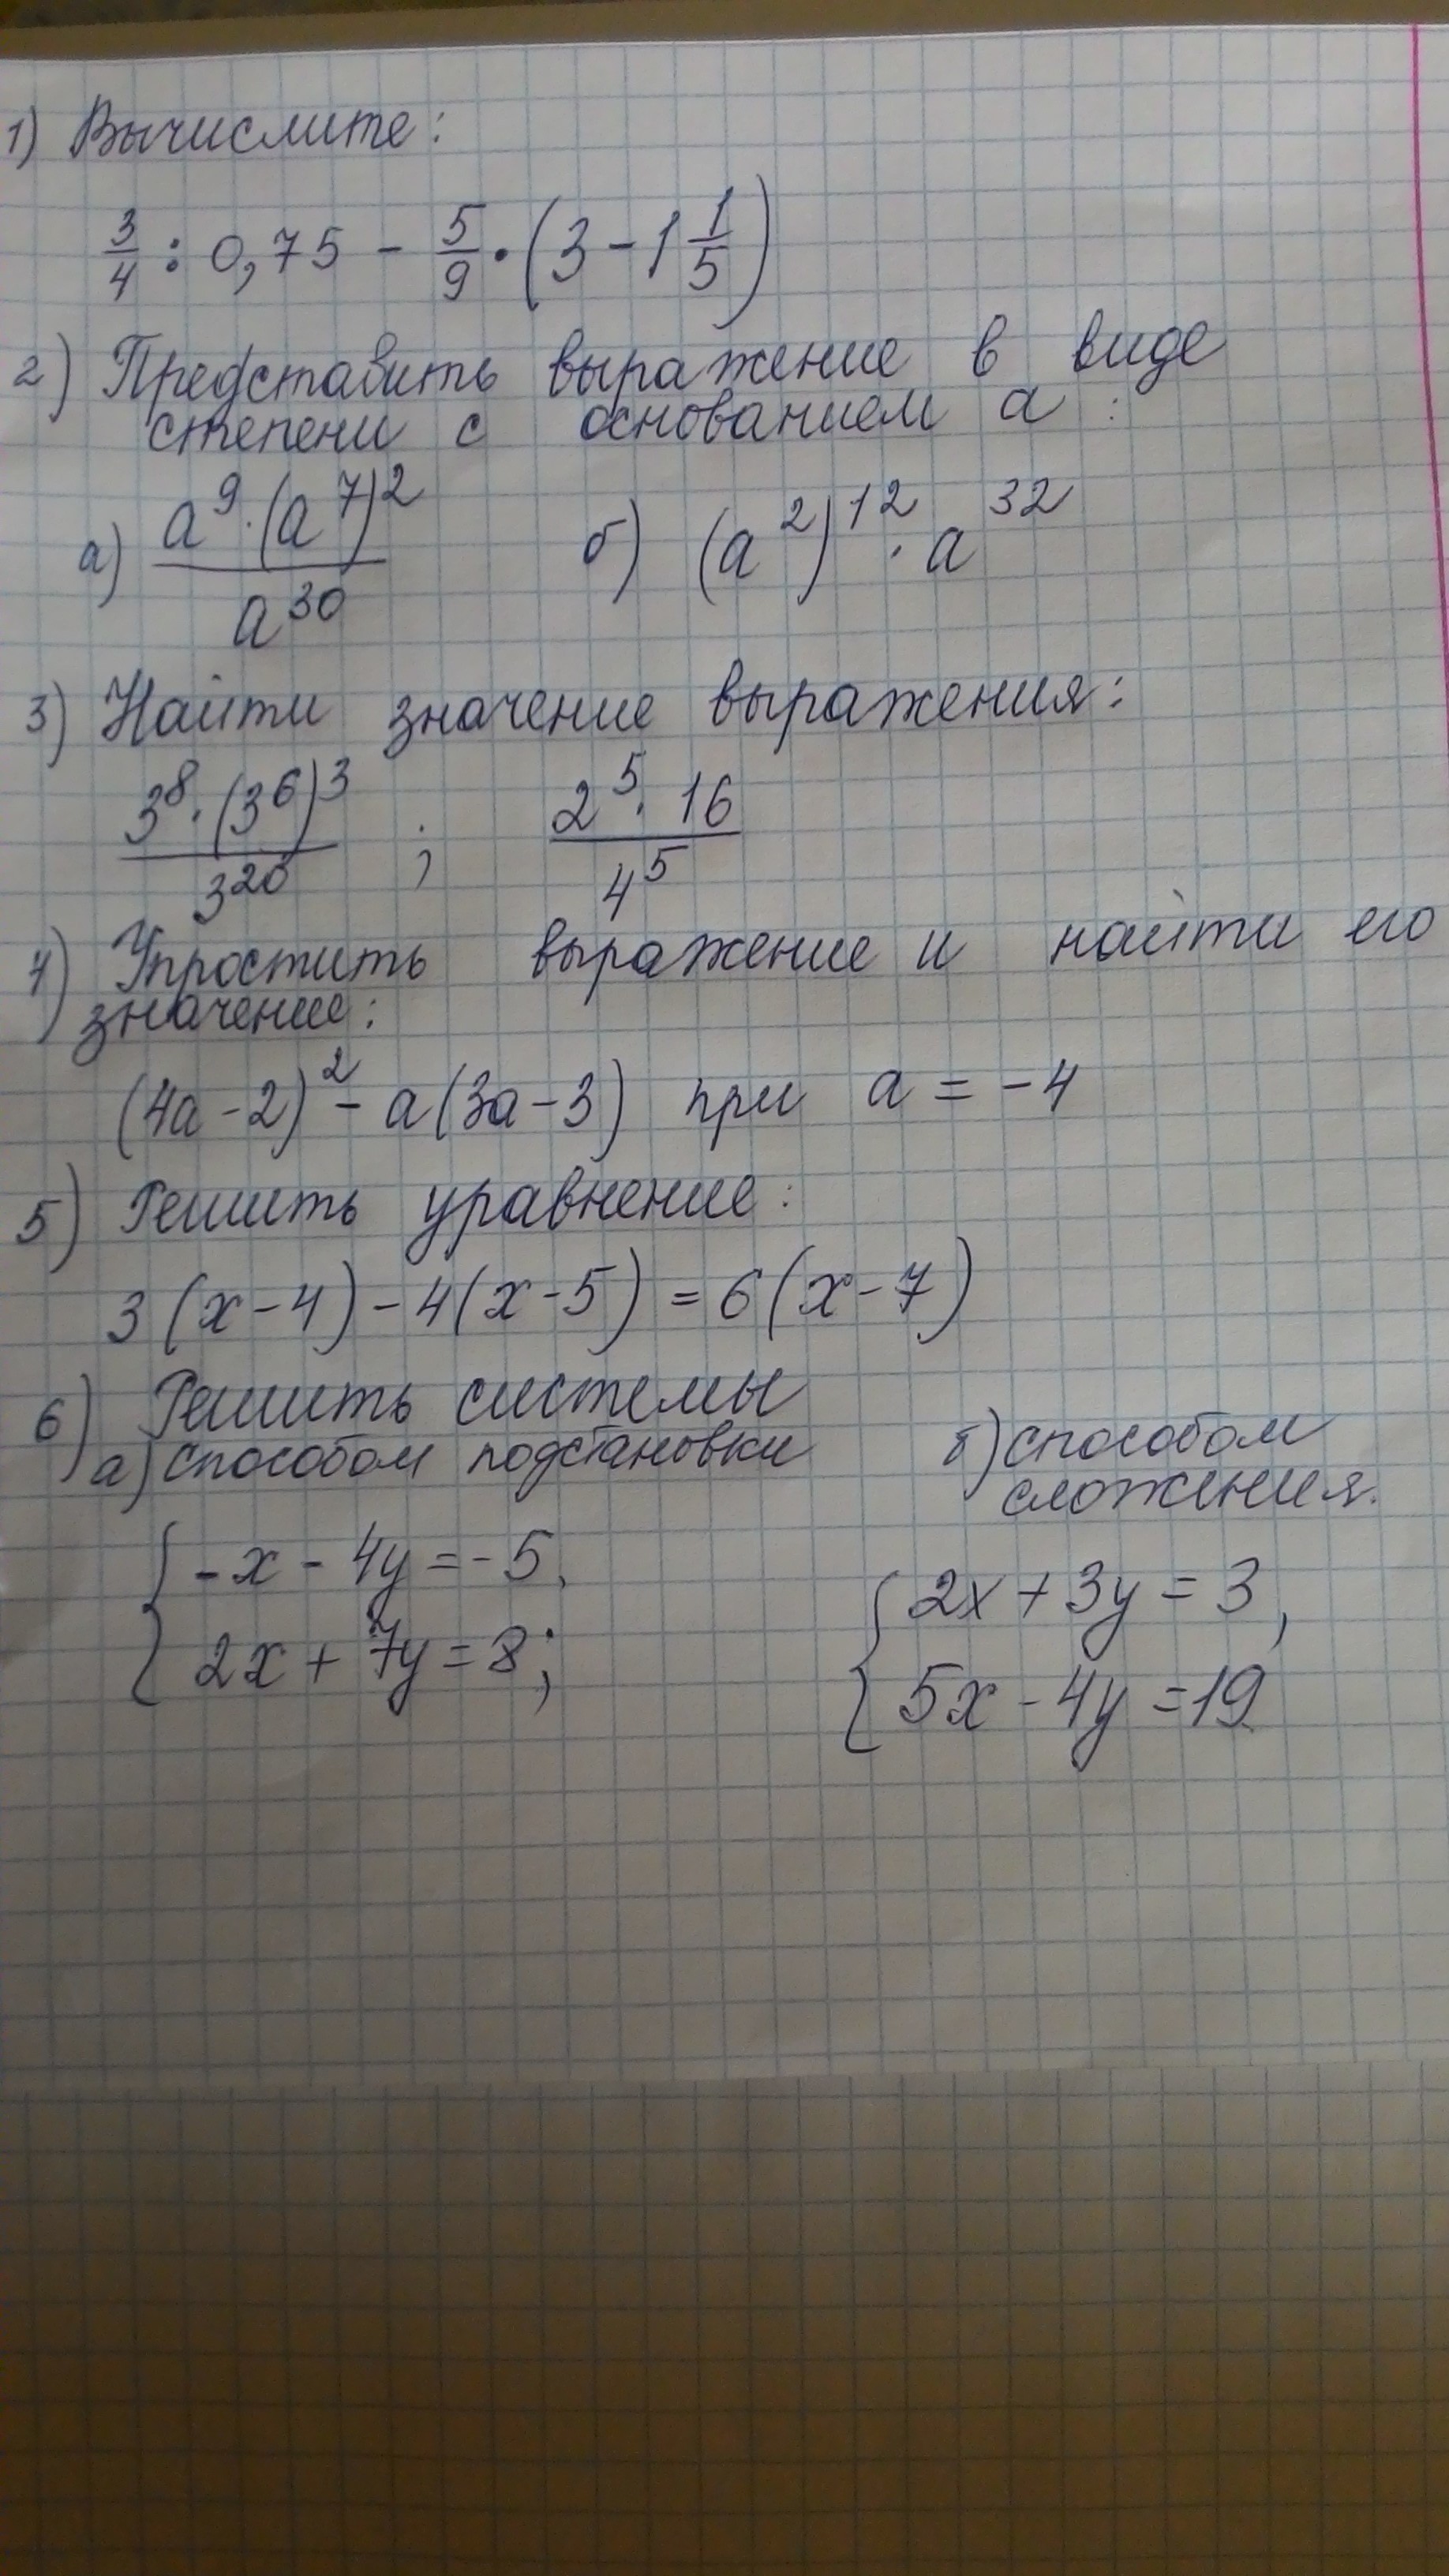 1) Вычислите:
3/4 : 0,75 - 5/9 · (3 - 1 1/5)
2) Представить выражение в виде
степени с основанием a:
а) a^9 · (a^7)^2 / a^30 б) (a^2)^12 · a^32
3) Найти значение выражения:
3^8 · (3^6)^3 / 3^20 ; 2^5 · 16 / 4^5
4) Упростить выражение и найти его
значение:
(4a - 2)^2 - a(3a - 3) при a = -4
5) Решить уравнение:
3(x - 4) - 4(x - 5) = 6(x - 7)
6) Решить системы
а) способом подстановки б) способом
сложения.
{ -x - 4y = -5, { 2x + 3y = 3,
2x + 7y = 8; 5x - 4y = 19.